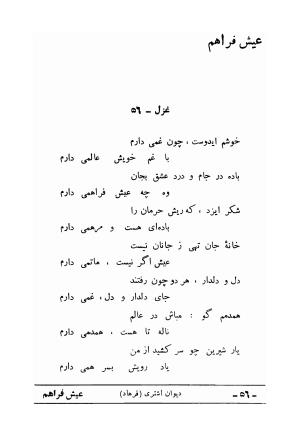 عیش فراهم
غزل - ۵۶
خوشم ایدوست ، چون غمی دارم
با غم خویش عالمی دارم
باده در جام و درد عشق بجان
وه چه عیش فراهمی دارم
شکر ایزد ، که ریش حرمان را
باده‌ای هست و مرهمی دارم
خانهٔ جان تهی ز جانان نیست
عیش اگر نیست ، ماتمی دارم
دل و دلدار ، هر دو چون رفتند
جای دلدار و دل ، غمی دارم
همدمم گو : مباش در عالم
ناله تا هست ، همدمی دارم
یار شیرین چو سر کشید از من
یاد رویش بسر همی دارم
- ۵۶ - دیوان اشتری (فرهاد) عیش فراهم